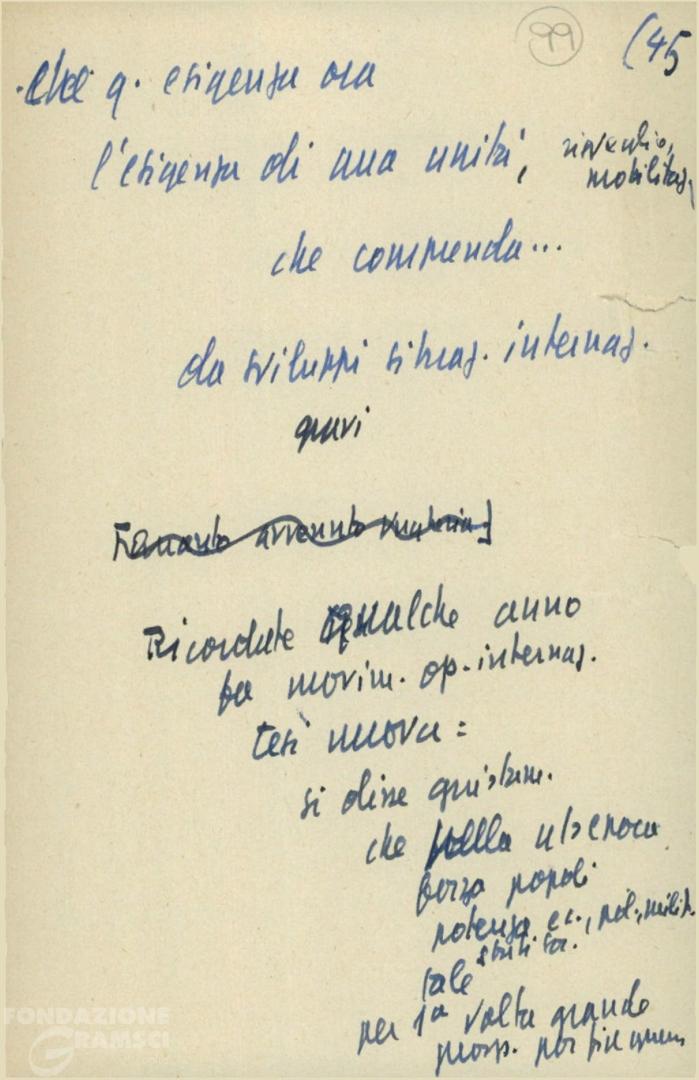 99
(45
che q. esigenza ora
l'esigenza di una unità, risveglio,
mobilitaz.
che comprenda...
da sviluppi situaz. internaz.
gravi
avvenuto
Ricordate qualche anno
fa movim. op. internaz.
tesi nuova:
si disse giustam.
che nella ns epoca
forza popoli
potenza ec., pol., milit.
stati soc.
tale
per 1ª volta grande
prosp. por fine guerra
FONDAZIONE
GRAMSCI